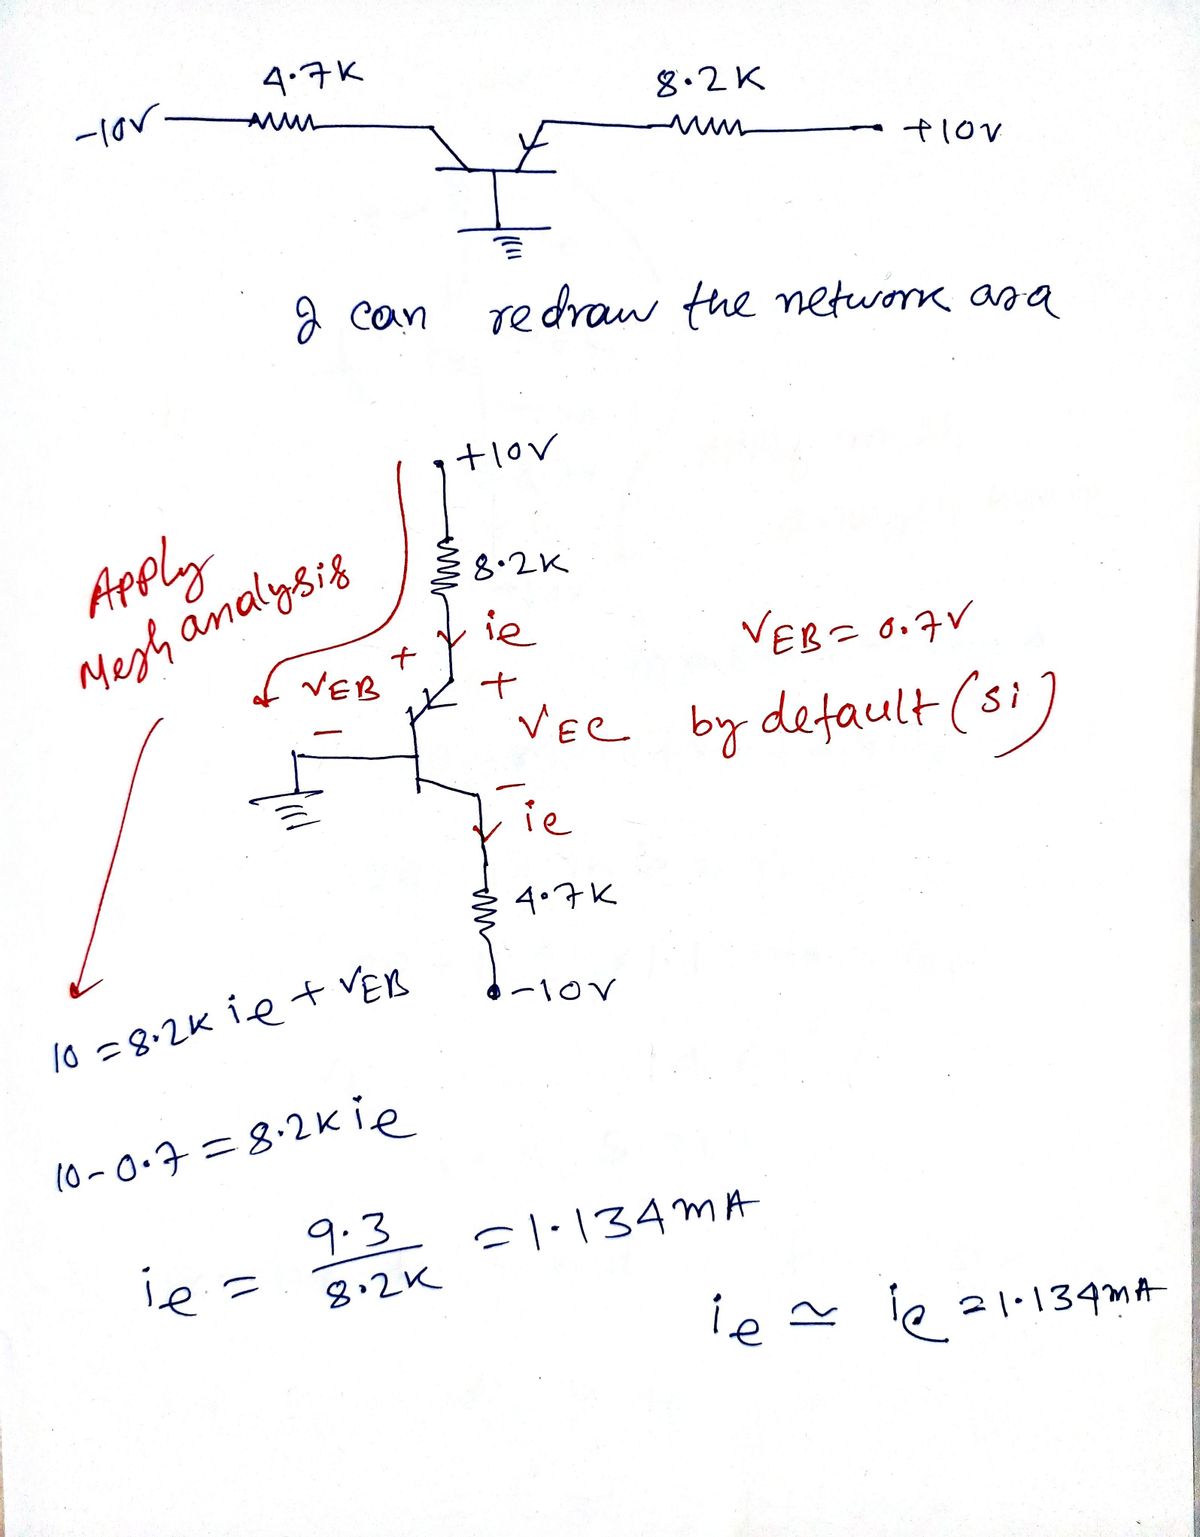 4.7K
8.2K
-10V
+10V
I can redraw the network as a
+10V
8.2K
Apply
Mesh analysis
ie
VEB = 0.7V
+
VEB
+
-
VEC
by default (si)
-
ie
4.7K
-10V
10 = 8.2K ie + VEB
10 - 0.7 = 8.2K ie
ie = 9.3 / 8.2K = 1.134mA
ie ≃ ic = 1.134mA